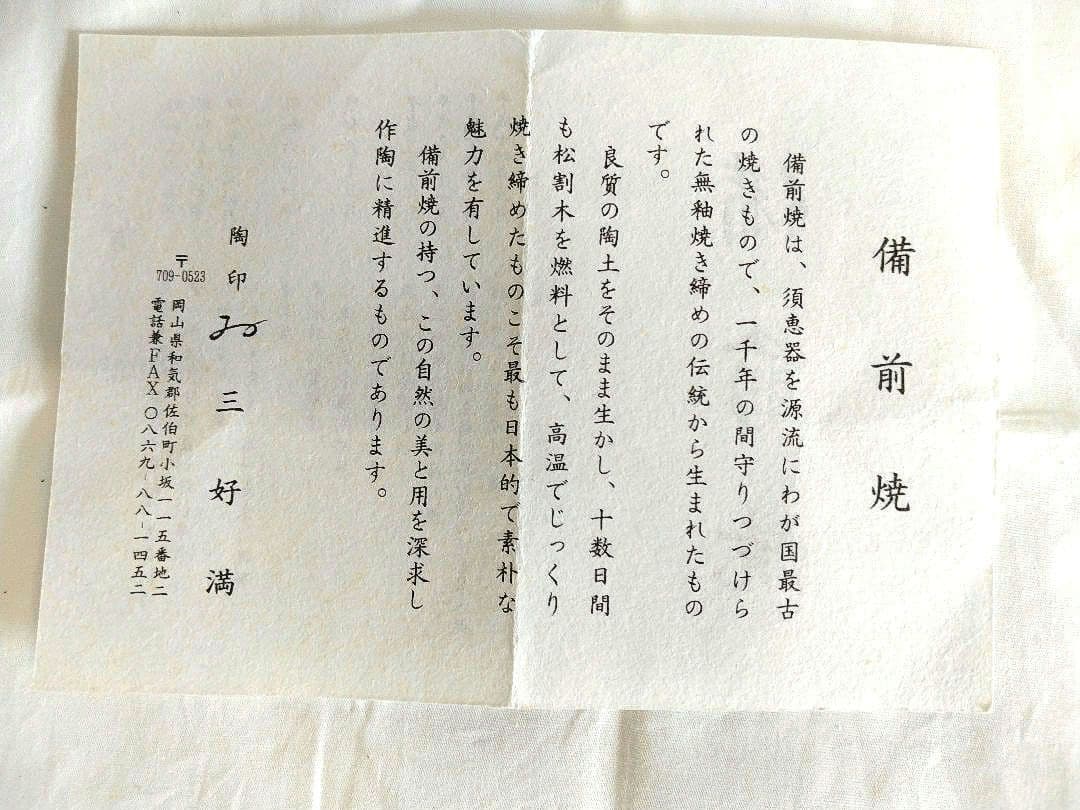 備前焼
備前焼は、須恵器を源流にわが国最古
の焼きもので、一千年の間守りつづけら
れた無釉焼き締めの伝統から生まれたもの
です。
良質の陶土をそのまま生かし、十数日間
も松割木を燃料として、高温でじっくり
焼き締めたものこそ最も日本的で素朴な
魅力を有しています。
備前焼の持つ、この自然の美と用を深求し
作陶に精進するものであります。
陶印
三好満
〒709-0523
岡山県和気郡佐伯町小坂一一五番地二
電話兼FAX〇八六九-八八-一四五二